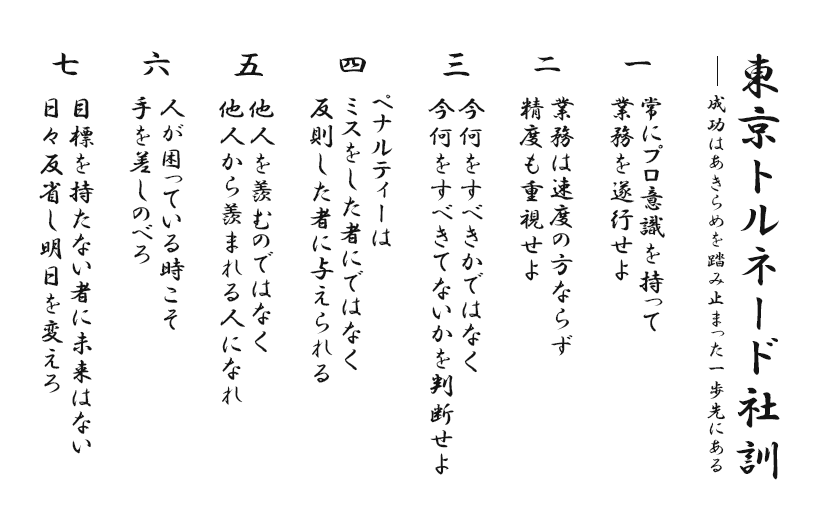 東京トルネード社訓
――成功はあきらめを踏み止まった一歩先にある
一
常にプロ意識を持って
業務を遂行せよ
二
業務は速度の方ならず
精度も重視せよ
三
今何をすべきかではなく
今何をすべきてないかを判断せよ
四
ペナルティーは
ミスをした者にではなく
反則した者に与えられる
五
他人を羨むのではなく
他人から羨まれる人になれ
六
人が困っている時こそ
手を差しのべろ
七
目標を持たない者に未来はない
日々反省し明日を変えろ